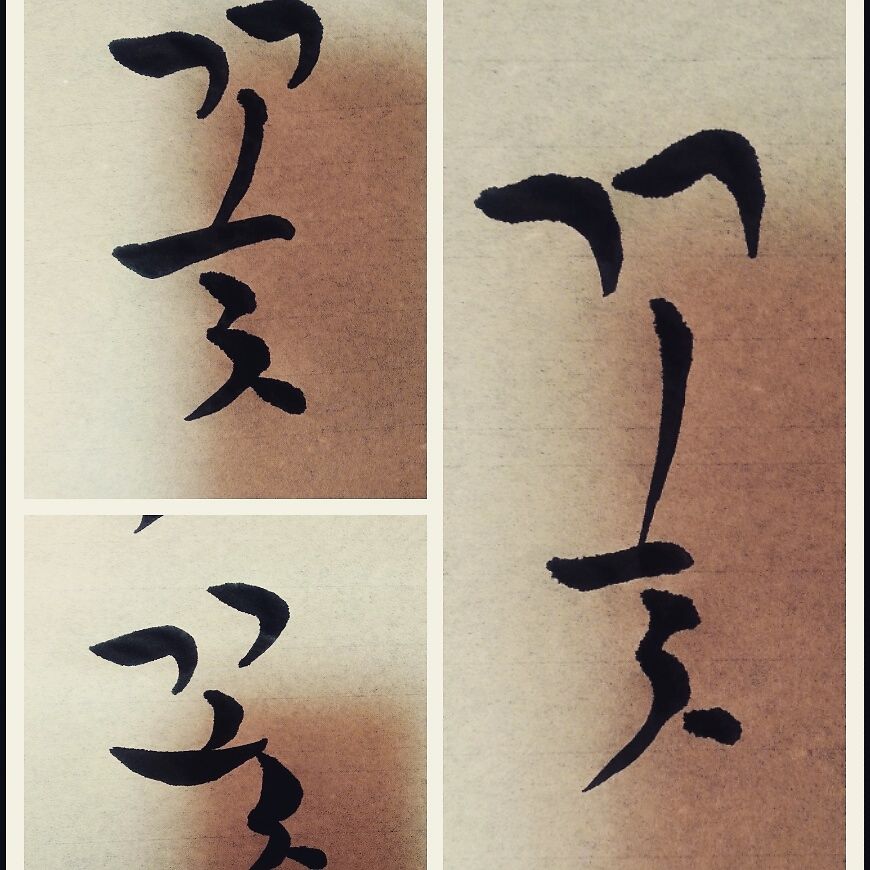 꽃
꽃
꽃